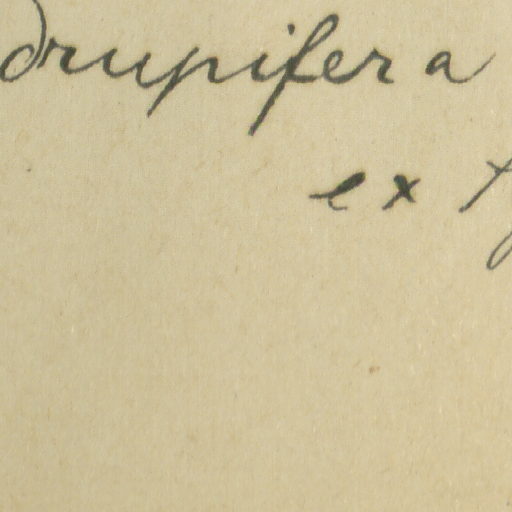 drupifera
ex